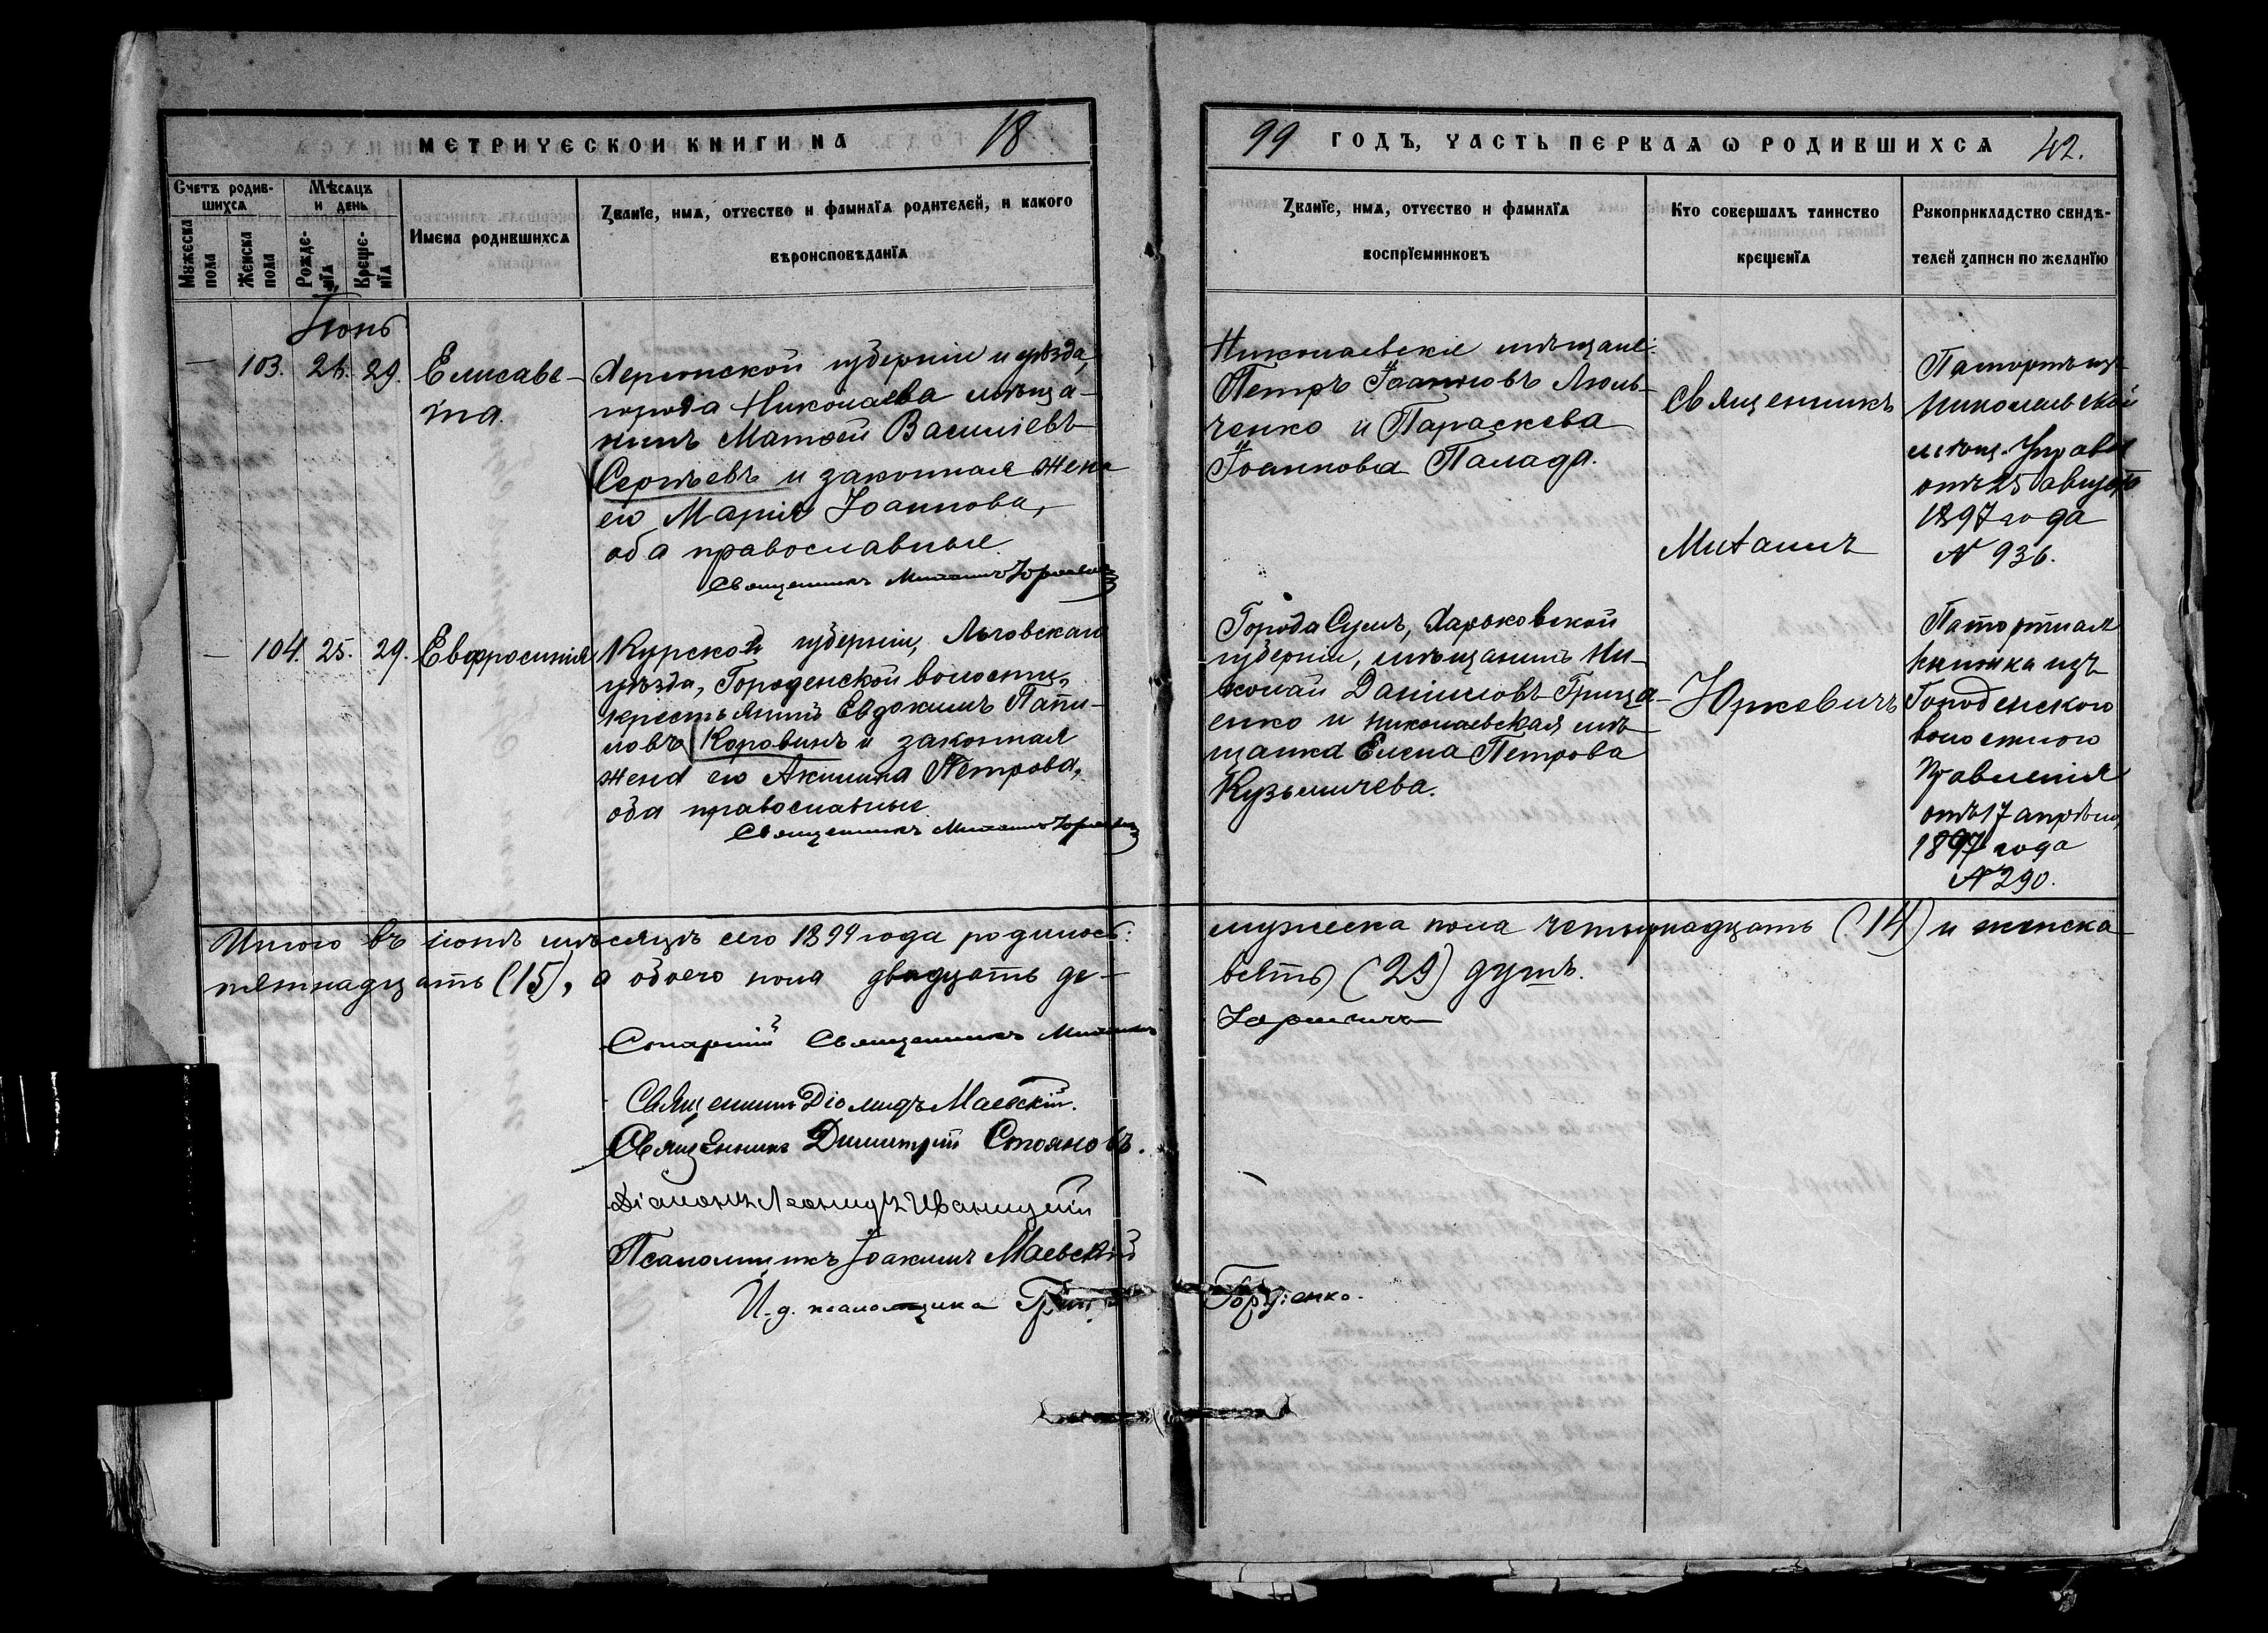 МЕТРИЧЕСКОЙ КНИГИ НА 18
99 ГОДЪ, ЧАСТЬ ПЕРВАЯ Ѡ РОДИВШИХСЯ 42.
Счетъ родив-
шихся
Мужеска
пола
Женска
пола
Мѣсяцъ
и день
Рожде-
нїя
Креще-
нїя
Имена родившихся
Званїе, имя, отчество и фамилїя родителей, и какого
вѣроисповѣданїя
Званїе, имя, отчество и фамилїя
воспрїемниковъ
Кто совершалъ таинство
крещенїя
Рукоприкладство свидѣ-
телей записи по желанїю
Іюнь
— 103. 26. 29.
Елисаве-
та.
Херсонской губерніи и уѣзда,
города Николаева мѣща-
нинъ Матѳей Василіевъ
Сергѣевъ и законная жена
его Марія Іоаннова,
оба православные.
Священникъ Михаилъ Юркевичъ
Николаевскіе мѣщане:
Петръ Іоанновъ Люль-
ченко и Параскева
Іоаннова Палада.
Священникъ
Михаилъ
Юркевичъ
Паспортъ изъ
Николаевской
мѣщ. Управы
отъ 25 августа
1897 года
№ 936.
— 104. 25. 29.
Евфросинія
Курской губерніи, Льговскаго
уѣзда, Городенской волости,
крестьянинъ Евдокимъ Папи-
ловъ Коровинъ и законная
жена его Акилина Петрова,
оба православные.
Священникъ Михаилъ Юркевичъ
Города Сумъ, Харьковской
губерніи, мѣщанинъ Ни-
колай Даніиловъ Грища-
енко и николаевская мѣ-
щанка Елена Петрова
Кузьмичева.
Паспортная
книжка изъ
Городенского
волостного
Правленія
отъ 17 апрѣля
1897 года
№ 290.
Итого въ іюнѣ мѣсяцѣ сего 1899 года родилось: мужеска пола четырнадцать (14) и женска
пятнадцать (15), а обоего пола двадцать де- вять (29) душъ.
Старшій Священникъ Михаилъ Юркевичъ
Священникъ Діомидъ Маевскій.
Священникъ Димитрій Стояновъ.
Діаконъ Леонидъ Иваницкій
Псаломщикъ Іоакимъ Маевскій
И. д. псаломщика Гордіенко.